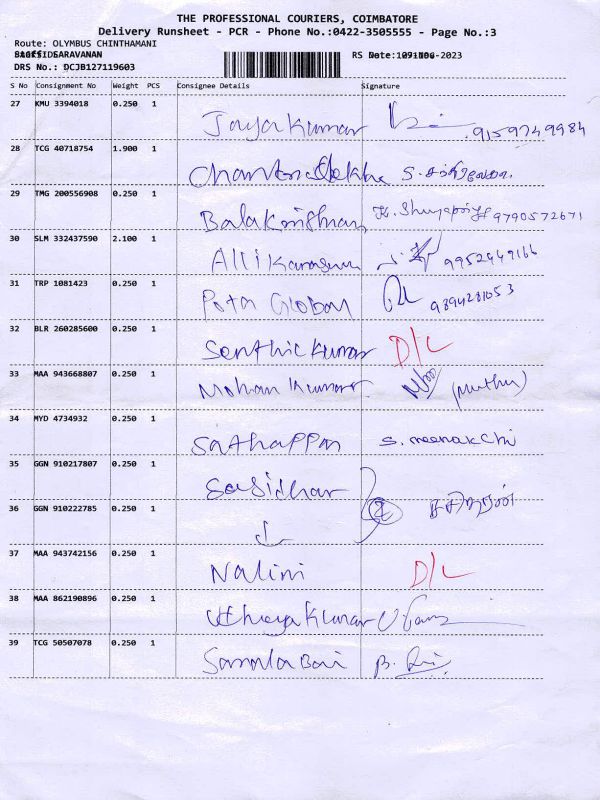 THE PROFESSIONAL COURIERS, COIMBATORE
Delivery Runsheet - PCR - Phone No.:0422-3505555 - Page No.:3
Route: OLYMBUS CHINTHAMANI
SARAVANAN
RS Date: -2023
DRS No.: DCJB127119603
S No Consignment No Weight PCS Consignee Details Signature
27 KMU 3394018 0.250 1 Jayakumar 9159749984
28 TCG 40718754 1.900 1
29 TMG 200556908 0.250 1 Balakrishnan 9790572671
30 SLM 332437590 2.100 1 9952449166
31 TRP 1081423 0.250 1 Global 9894281053
32 BLR 260285600 0.250 1 Senthil Kumar D/L
33 MAA 943668807 0.250 1 Mohan Kumar (Muthu)
34 MYD 4734932 0.250 1 Sathappan S. meenakchi
35 GGN 910217807 0.250 1 Sasidhar
36 GGN 910222785 0.250 1
37 MAA 943742156 0.250 1 Nalini D/L
38 MAA 862190896 0.250 1 Uthayakumar
39 TCG 50507078 0.250 1 Sarala Bai B.